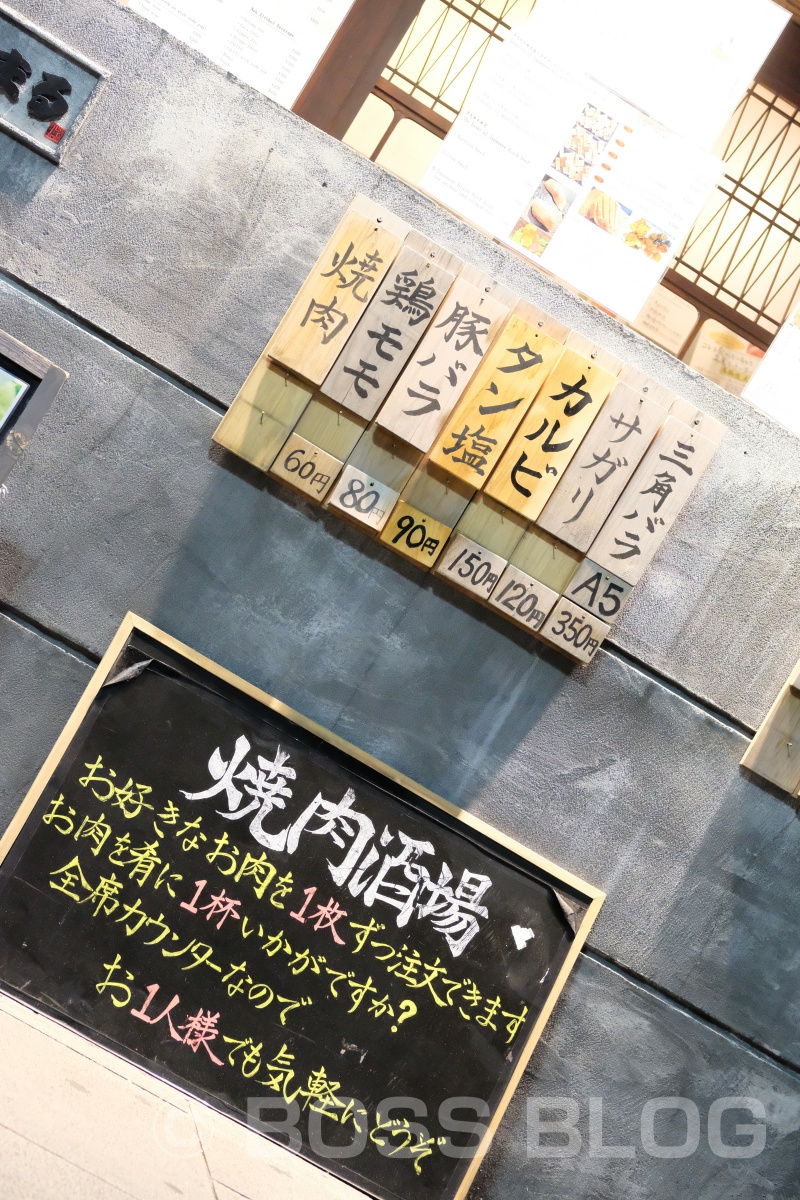 まる
焼肉
鶏モモ
60円
豚バラ
80円
タン塩
90円
カルビ
150円
サガリ
120円
三角バラ
A5
350円
焼肉酒場
お好きなお肉を1枚ずつ注文できます
お肉を肴に1杯いかがですか?
全席カウンターなので
お1人様でも気軽にどうぞ
© BOSS BLOG